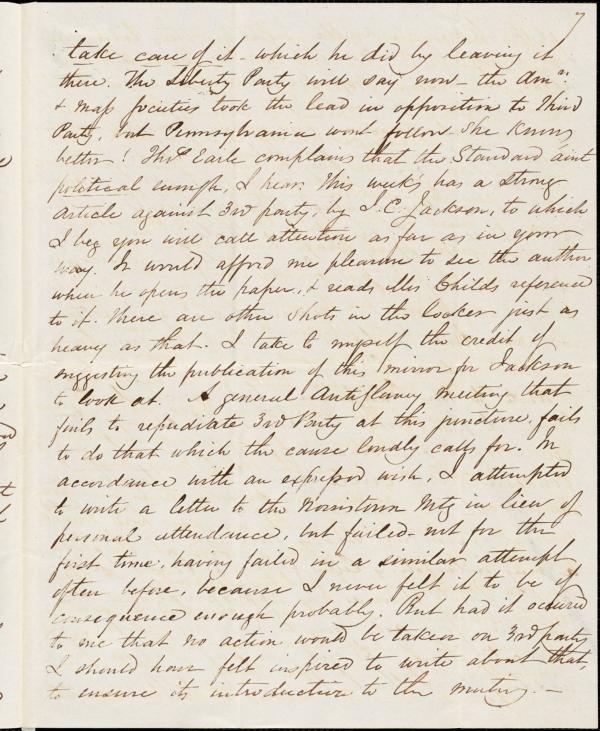 7
take care of it - which he did by leaving it
there. The Liberty Party will say now - the Amn.
& Mass societies took the lead in opposition to Third
Party, but Pennsylvania wont follow. She knows
better! Thos. Earle complains that the Standard aint
political enough, I hear. This week's has a strong
article against 3rd party, by J. C. Jackson, to which
I beg you will call attention as far as in your
way. It would afford me pleasure to see the author
when he opens the paper, & reads Mrs Childs reference
to it. There are other shots in the locker just as
heavy as that. I take to myself the credit of
suggesting the publication of this mirror for Jackson
to look at. A general Antislavery meeting that
fails to repudiate 3rd Party at this juncture, fails
to do that which the cause loudly calls for. In
accordance with an expressed wish, I attempted
to write a letter to the Norristown Mtg in lieu of
personal attendance, but failed - not for the
first time, having failed in a similar attempt
often before, because I never felt it to be of
consequence enough probably. But had it occured
to me that no action would be taken on 3rd party
I should have felt inspired to write about that,
to ensure its introduction to the meeting. -